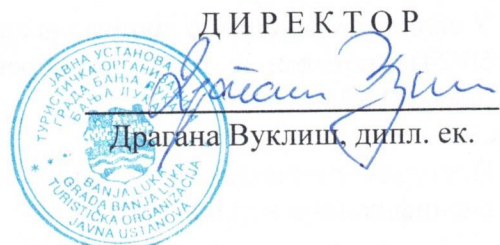 ДИРЕКТОР
Драгана Вуклиш, дипл. ек.
ЈАВНА УСТАНОВА
ТУРИСТИЧКА ОРГАНИЗАЦИЈА
ГРАДА БАЊА ЛУКА
БАЊА ЛУКА
BANJA LUKA
GRADA BANJA LUKA
TURISTIČKA ORGANIZACIJA
JAVNA USTANOVA